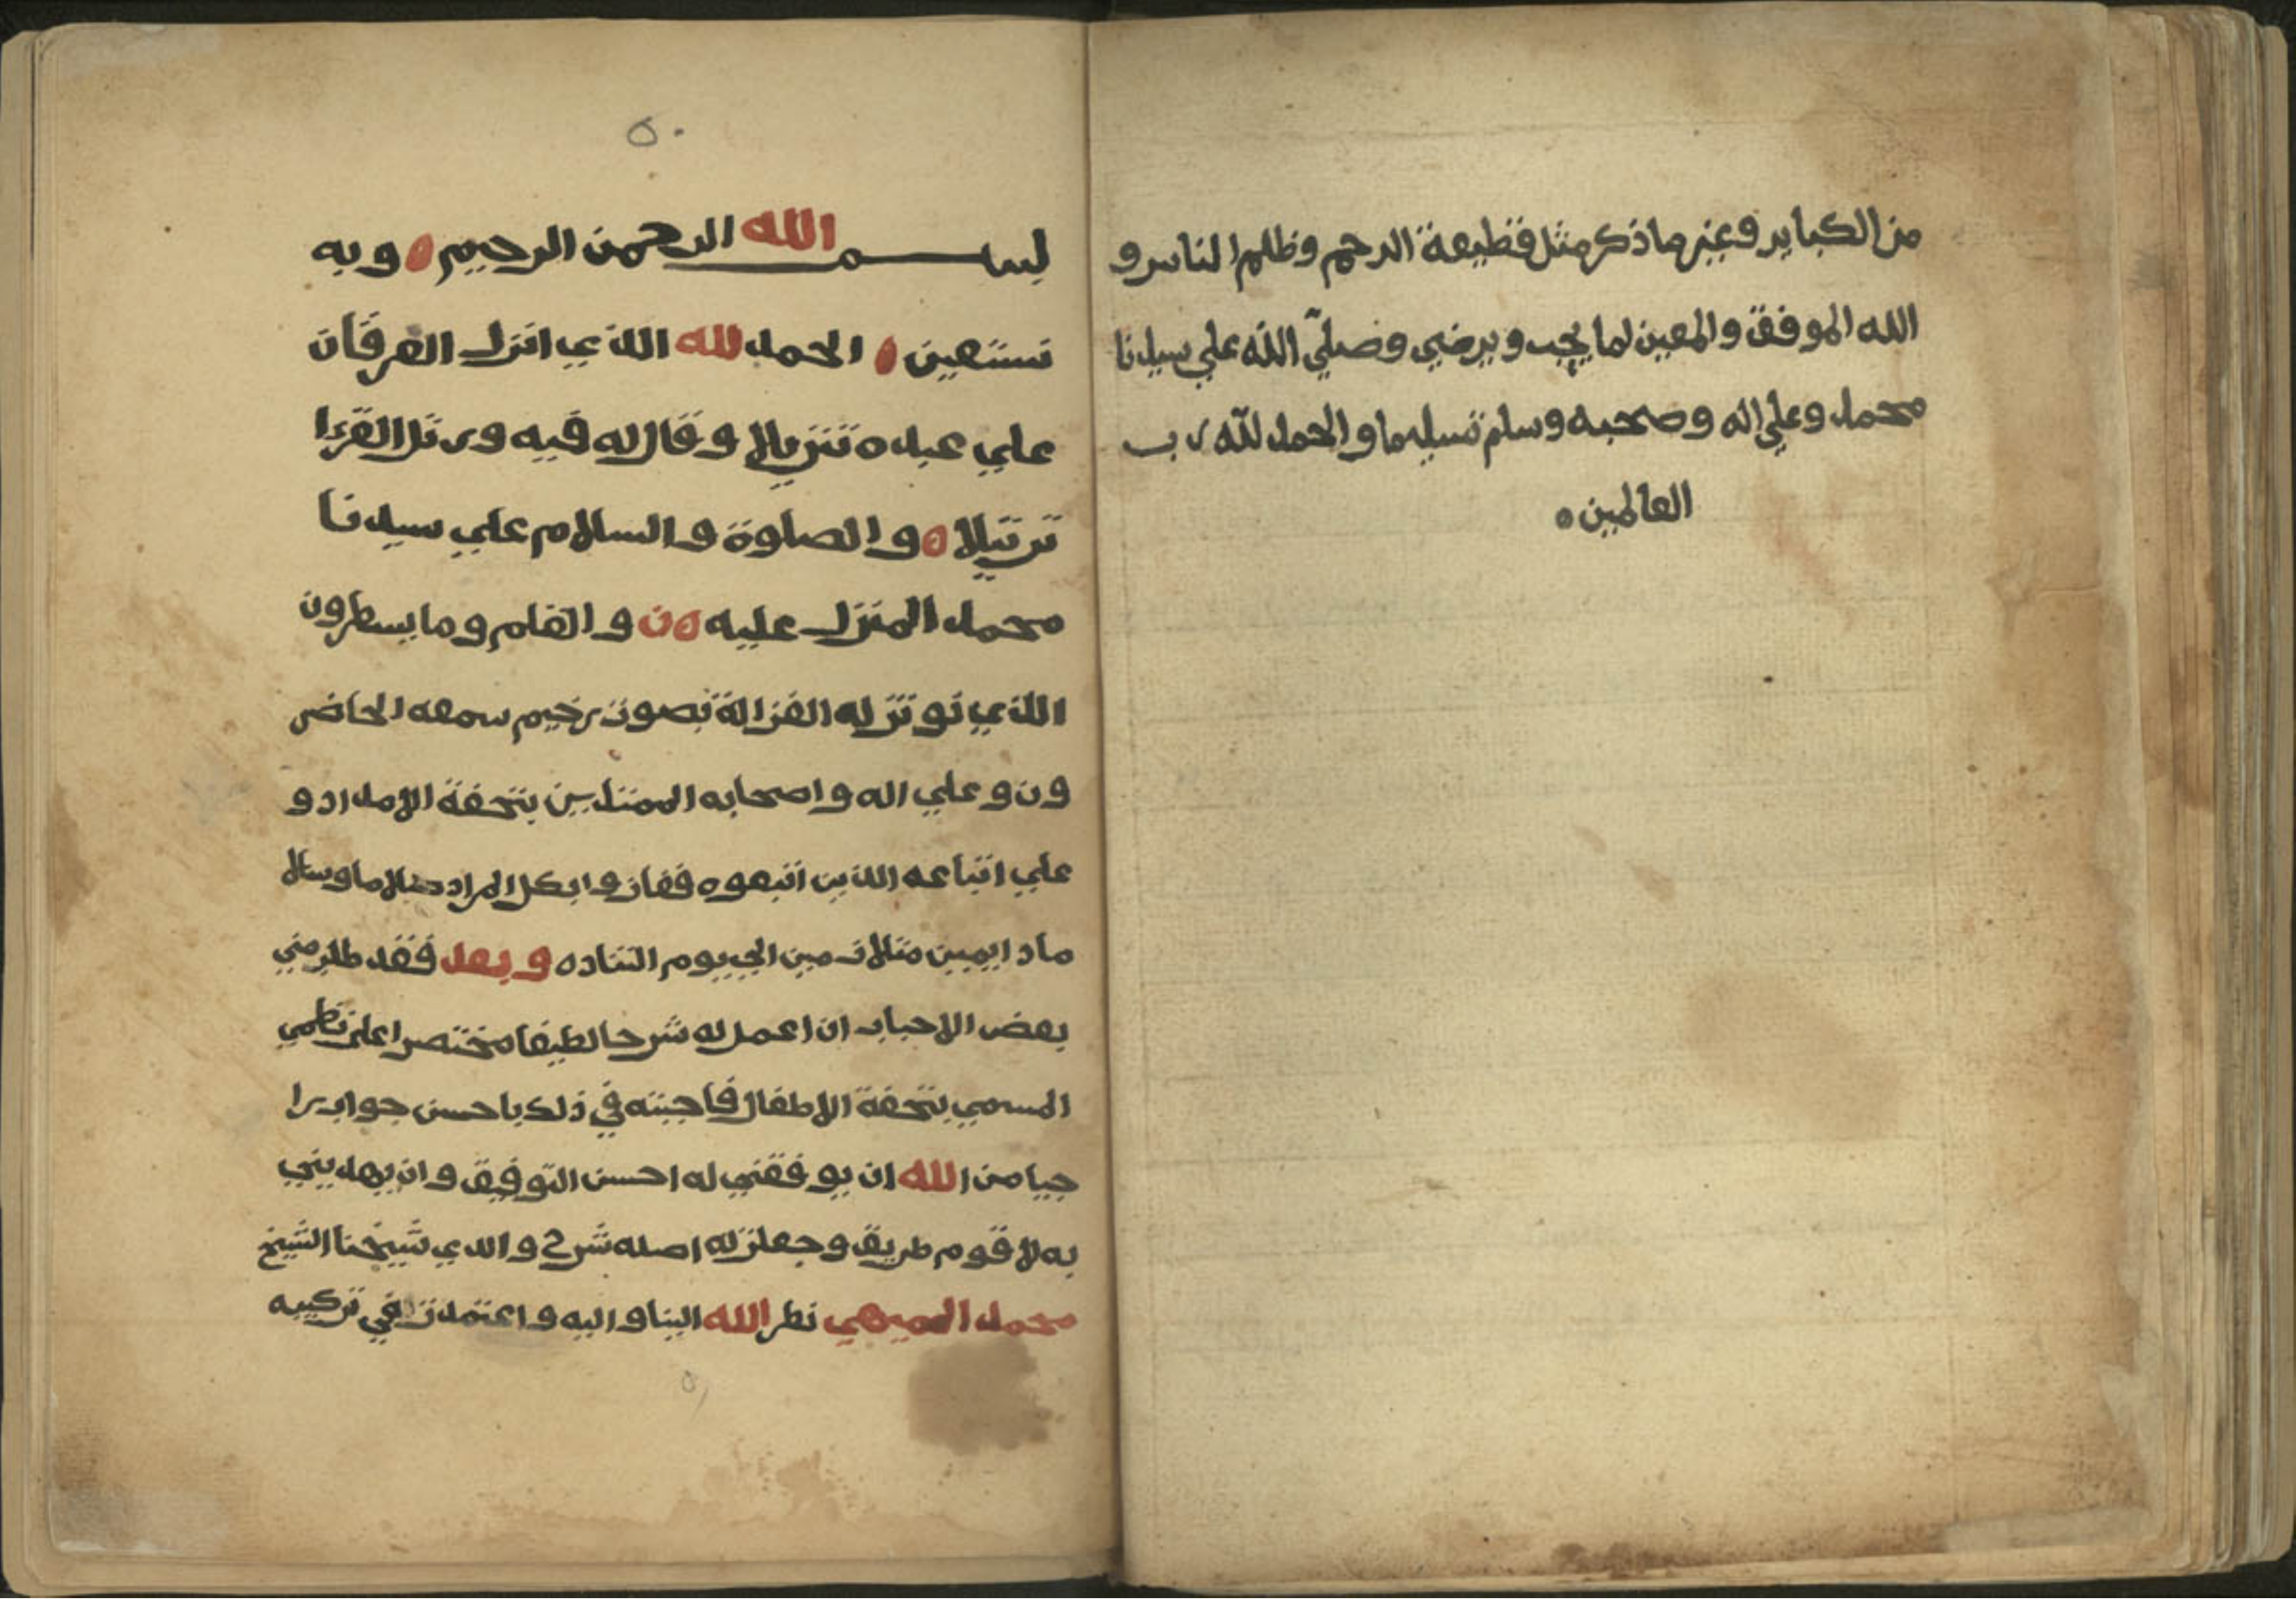 من الكباير وغير ما ذكر مثل قطيعة الرحم وظلم الناس و
الله الموفق والمعين لما يحب ويرضي وصلّي الله علي سيدنا
محمد وعلي اله وصحبه وسلم تسليما والحمد لله رب
العالمين ه
٥٠
بسم الله الرحمن الرحيم ه وبه
نستعين ه الحمد لله الذي انزل الفرقان
علي عبده تنزيلا وقال له فيه ورتل القرءا
ترتيلا ه والصلوة والسلام علي سيدنا
محمد المنزل عليه ه ن والقلم وما يسطرون
الذي نوتر له الغزالة بصوت رخيم سمعه الحاضر
ون وعلي اله واصحابه الممتدين بتحفة الامداد و
علي اتباعه الذين اتبعوه ففازوا بكل المراد صلاما وسلا
ما دايمين متلازمين الي يوم التناده وبعد فقد طلب مني
بعض الاحباب ان اعمل له شرحا لطيفا مختصرا علي نظمي
المسمي بتحفة الاطفال فاجبته في ذلك باحسن جواب را
جيا من الله ان يوفقني له احسن التوفيق وان يهديني
به لاقوم طريق وجعلت له اصله شرح والدي شيخنا الشيخ
محمد الميهي نظر الله الينا واليه واعتمدت في تركيبه